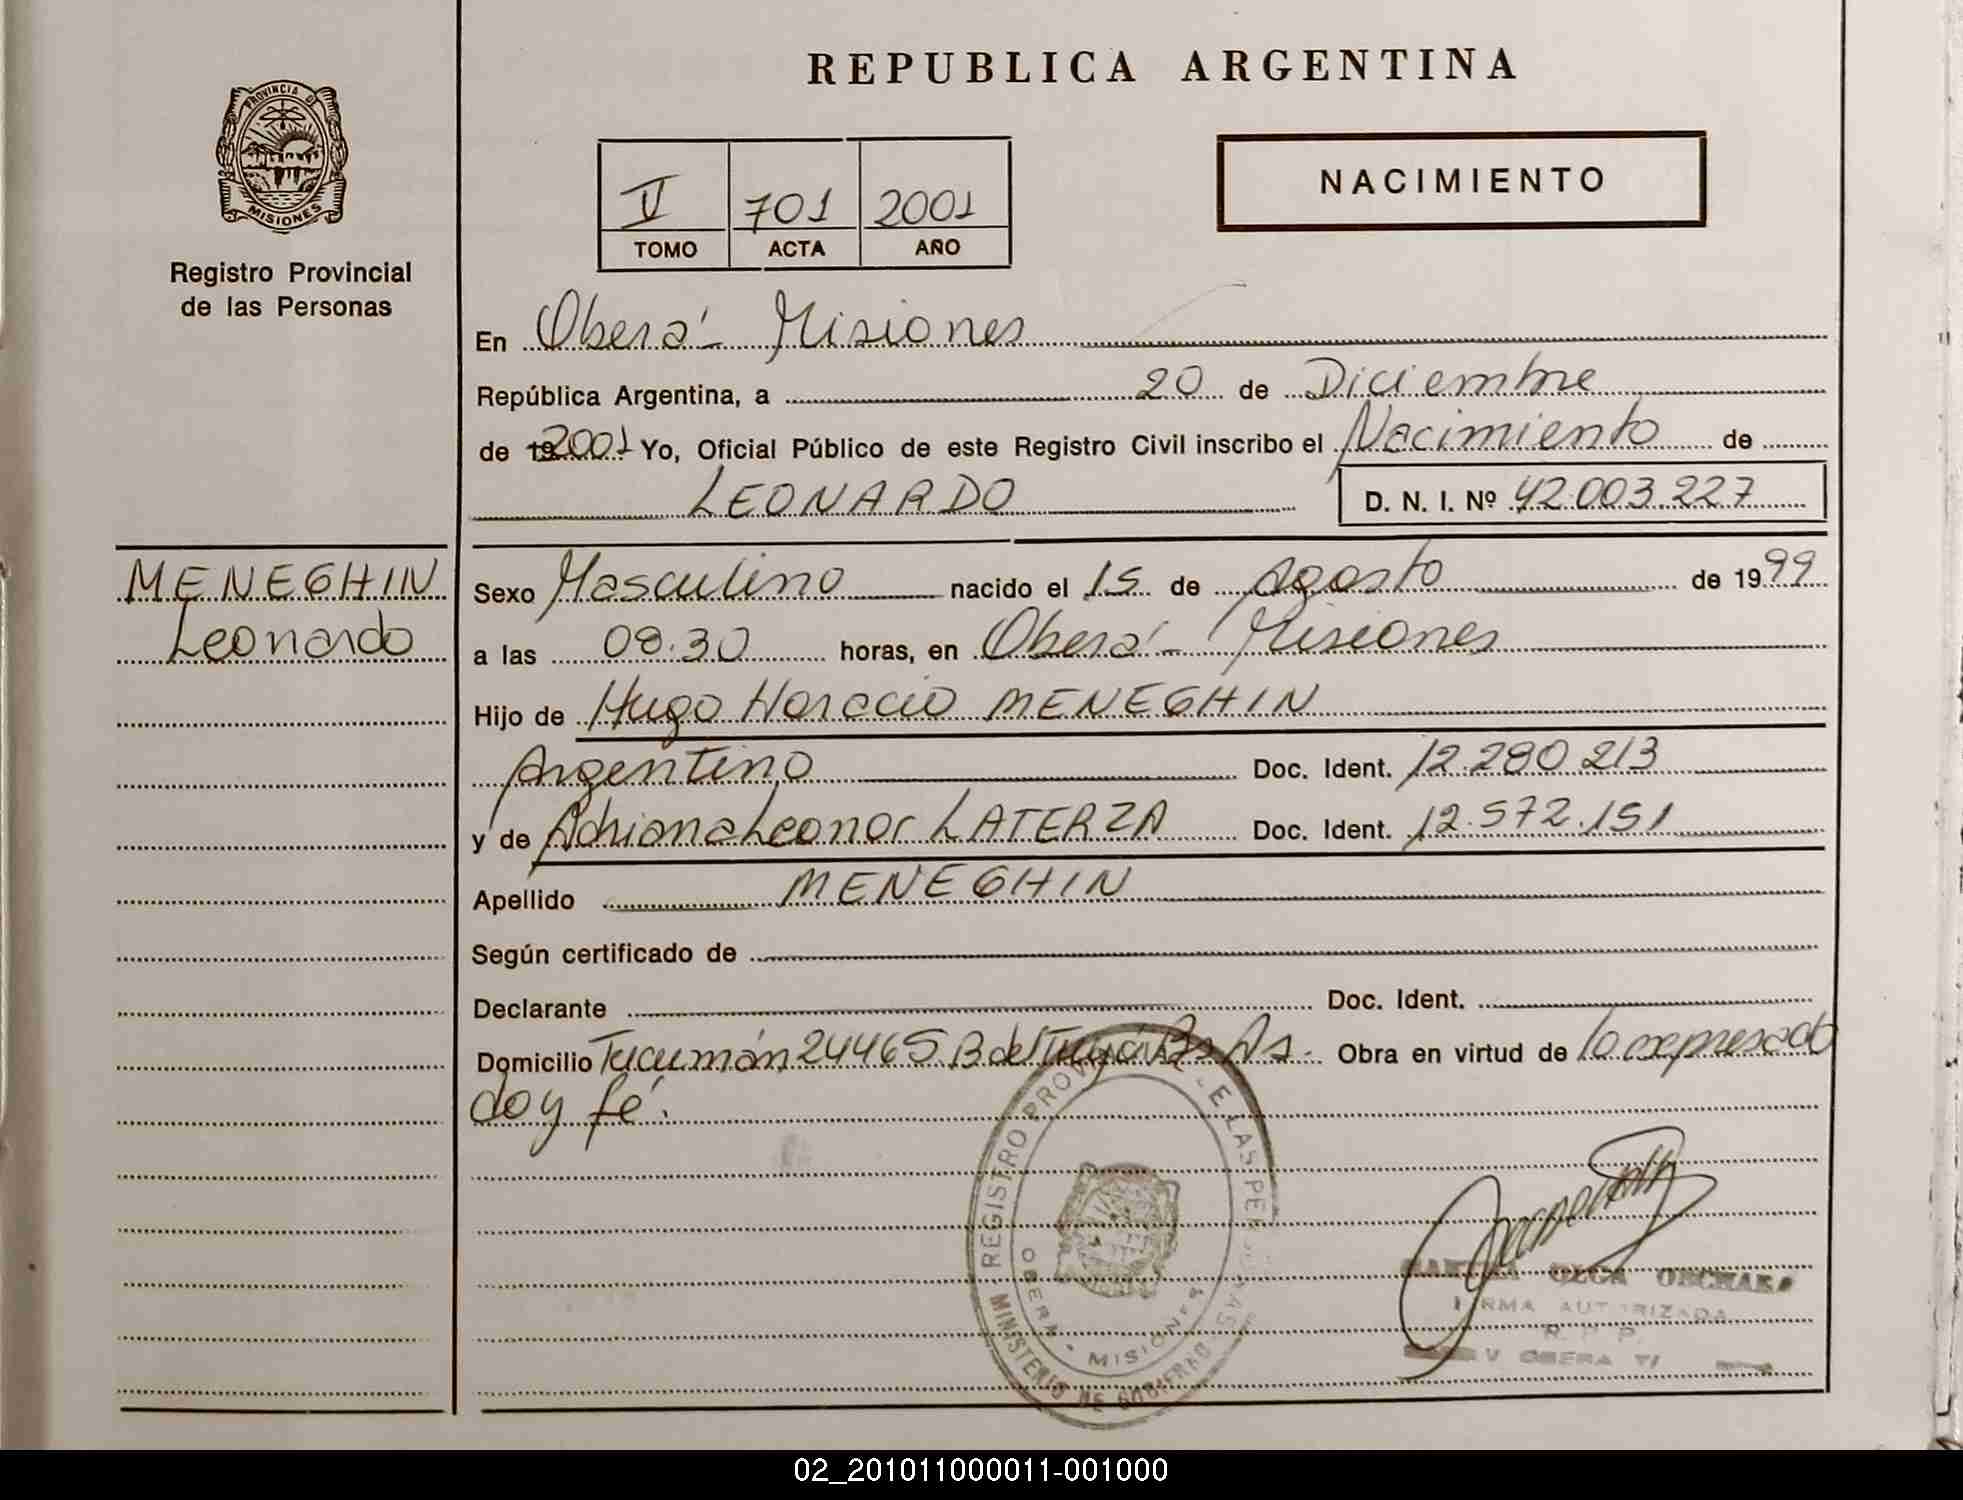 REPUBLICA ARGENTINA
PROVINCIA DE
MISIONES
Registro Provincial
de las Personas
V 701 2001
TOMO ACTA AÑO
NACIMIENTO
En Oberá - Misiones
República Argentina, a 20 de Diciembre
de 2001 Yo, Oficial Público de este Registro Civil inscribo el Nacimiento de
LEONARDO D. N. I. Nº 42.003.227
MENEGHIN
Leonardo
Sexo Masculino nacido el 15 de Agosto de 1999
a las 08.30 horas, en Oberá - Misiones
Hijo de Hugo Horacio MENEGHIN
Argentino Doc. Ident. 12.280.213
y de Adriana Leonor LATERZA Doc. Ident. 12.572.151
Apellido MENEGHIN
Según certificado de
Declarante Doc. Ident.
Domicilio Tucumán 24465 Bs As. Obra en virtud de lo expresado
doy fé.
REGISTRO PROV E LAS PE
OBERA - MISIONES
MINISTERIO DE GOBIERNO
OLGA
FIRMA AUTORIZADA
R. P. P.
OBERA
02_201011000011-001000